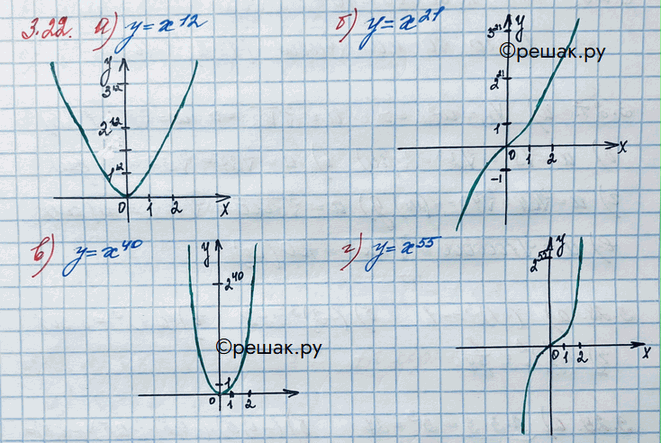 3.22. а) y = x¹²
y
3¹²
2¹²
1¹²
0 1 2 x
б) y = x²¹
y
3²¹
©решак.ру
2²¹
1
0 1 2 x
-1
в) y = x⁴⁰
y
2⁴⁰
©решак.ру
1
0 1 2
г) y = x⁵⁵
y
2⁵⁵
0 1 2 x